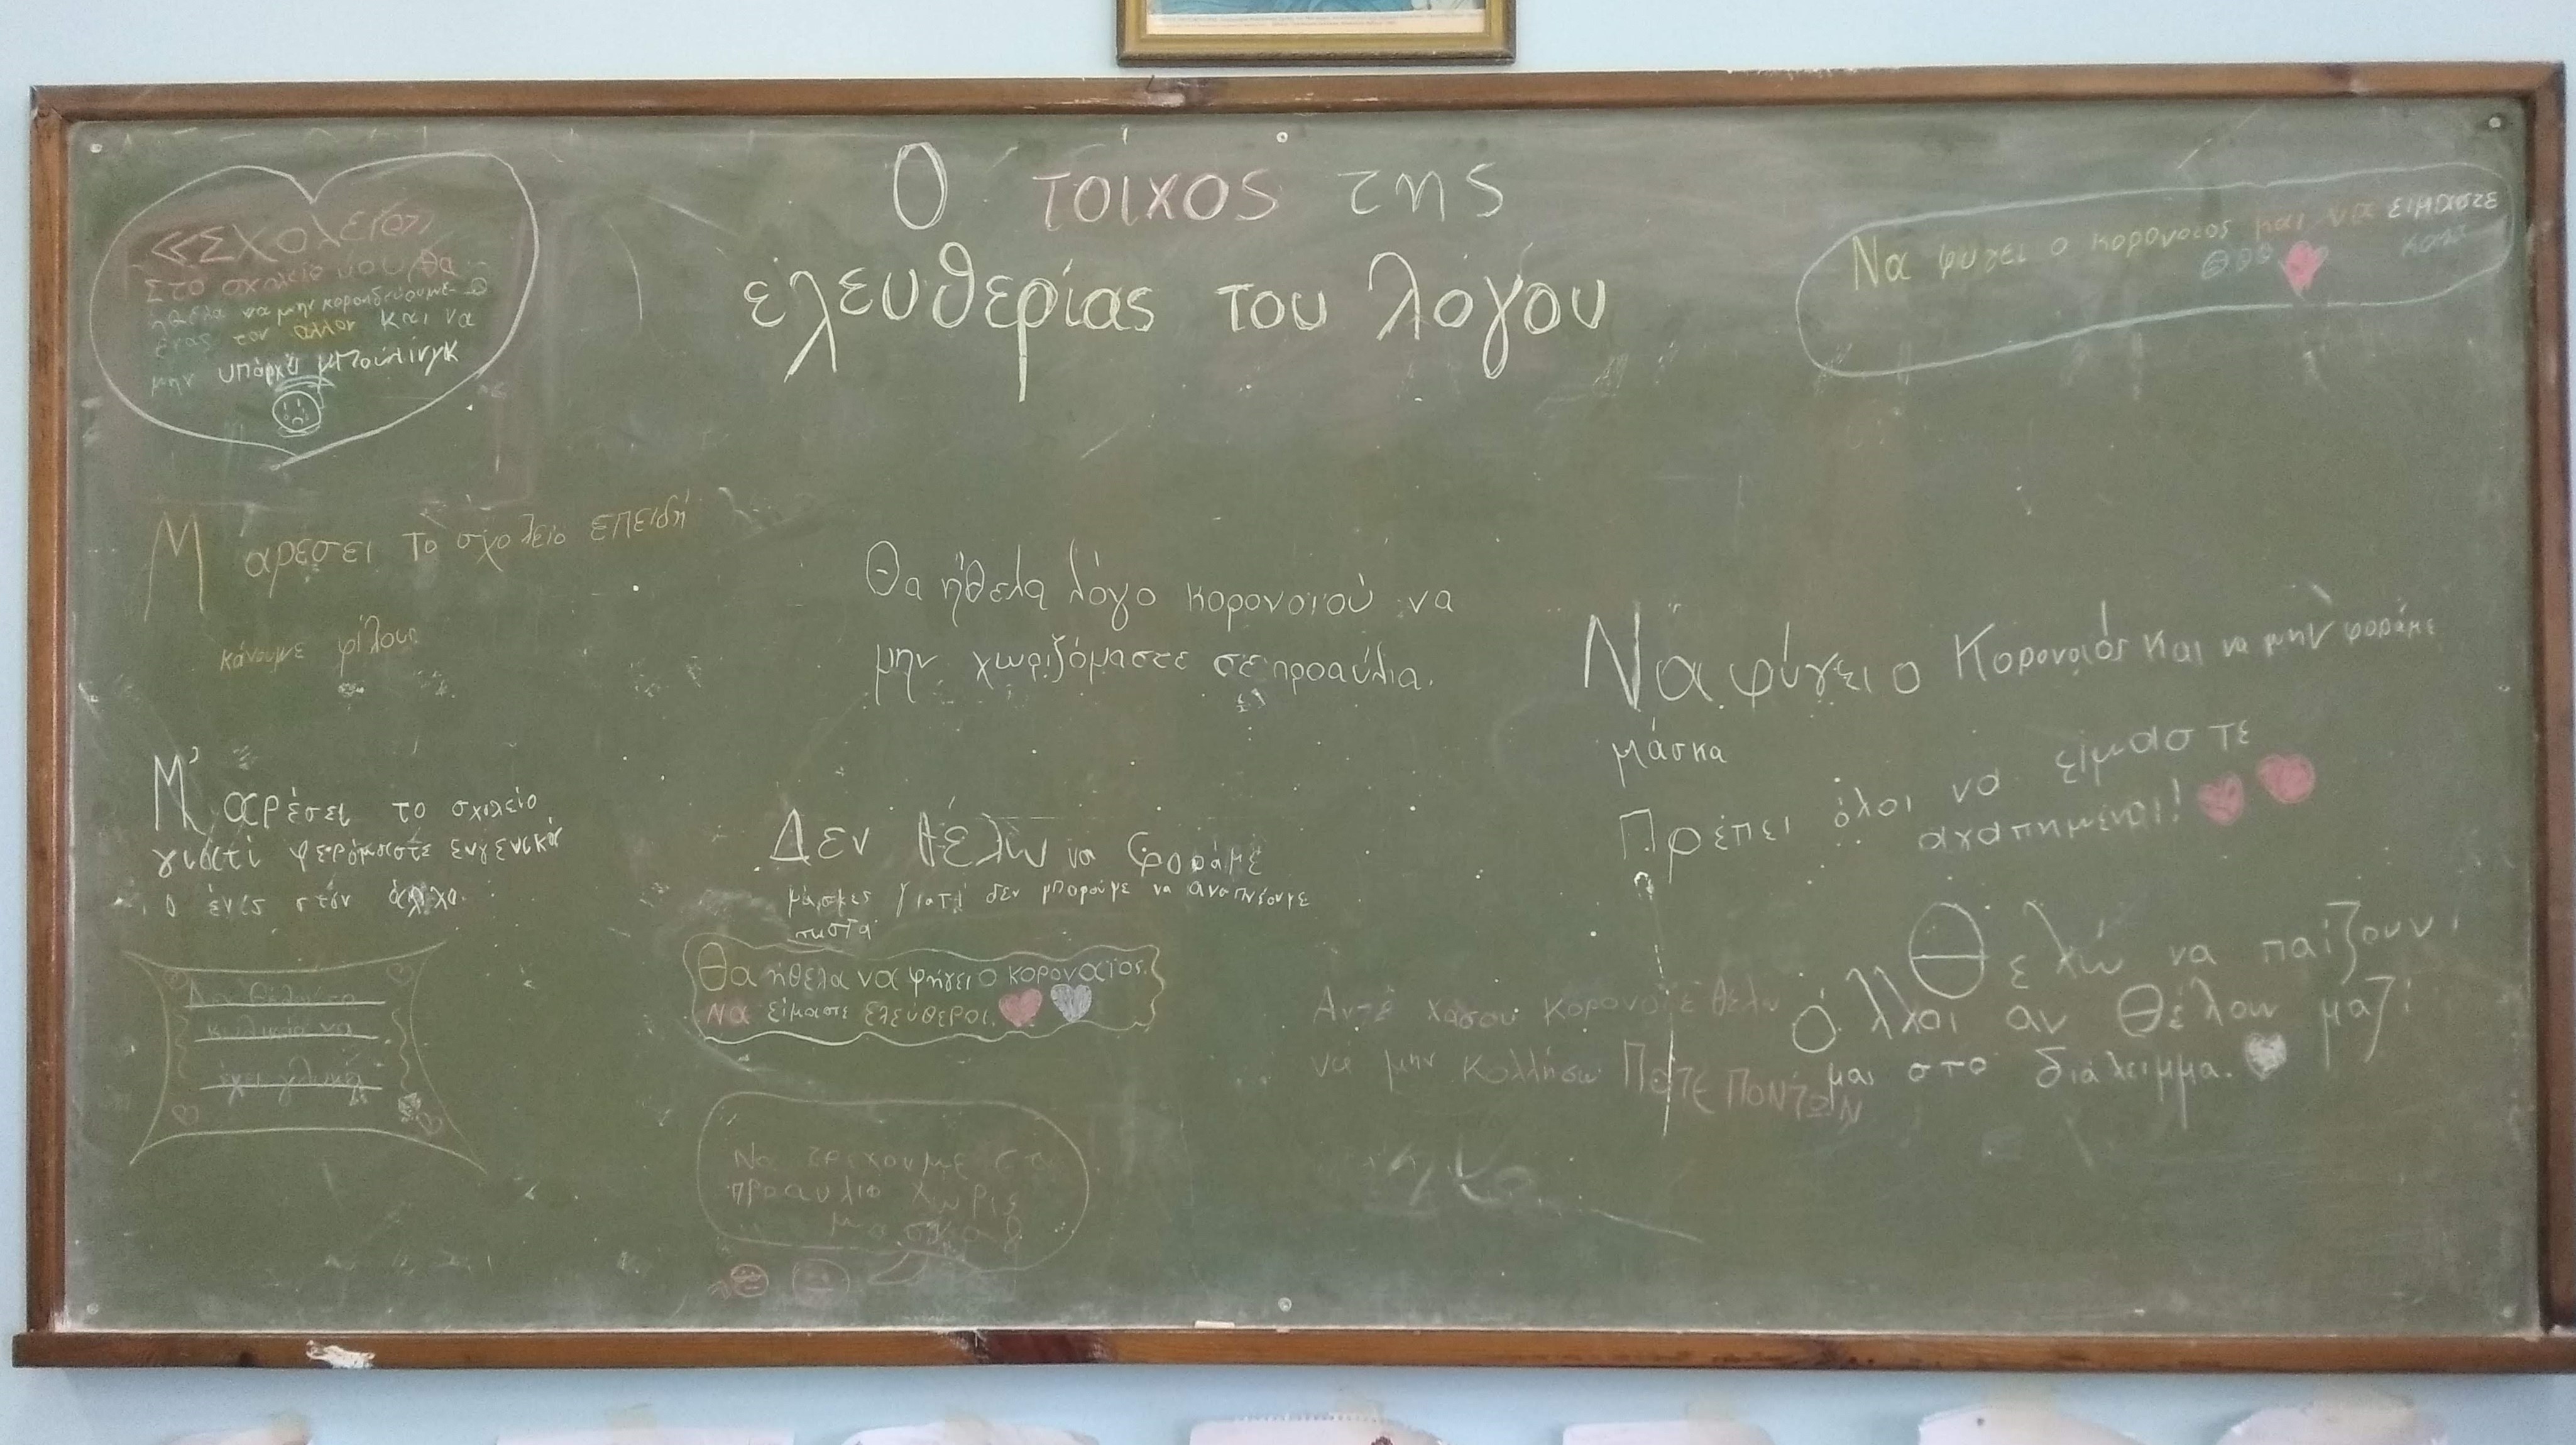 Ο τοίχος της
ελευθερίας του λόγου
«Σχολείο»
Στο σχολείο μου θα
ήθελα να μην κοροιδεύουμε
ένας τον άλλον και να
μην υπάρχει μπούλινγκ
Να φυγει ο κορονοιος και να ειμαστε
καλα
Μ αρέσει το σχολείο επειδή
κάνουμε φίλους
Μ' αρέσει το σχολείο
γιατί φερόμαστε ευγενικά
ο ένας στον
Θα ήθελα λόγο κορονοιού να
μην χωριζόμαστε σε προαύλια.
Δεν θέλω να φοράμε
μάσκες γιατί δεν μπορούμε να αναπνέουμε
σωστά
Θα ήθελα να φήγει ο κορονοιος.
Να είμαστε ελεύθεροι.
Να τρέχουμε στο
προαυλιο χωρίς
μασκα
Να φύγει ο Κορονοιός και να μην φοράμε
μάσκα
Πρέπει όλοι να είμαστε
αγαπημένοι!
Θελω να παίζουν
άλλοι αν θέλουν μαζί
μας στο διάλειμμα.
Αντε χάσου Κορονοιέ θελω
να μην Κολλήσω ΠΟΤΕ